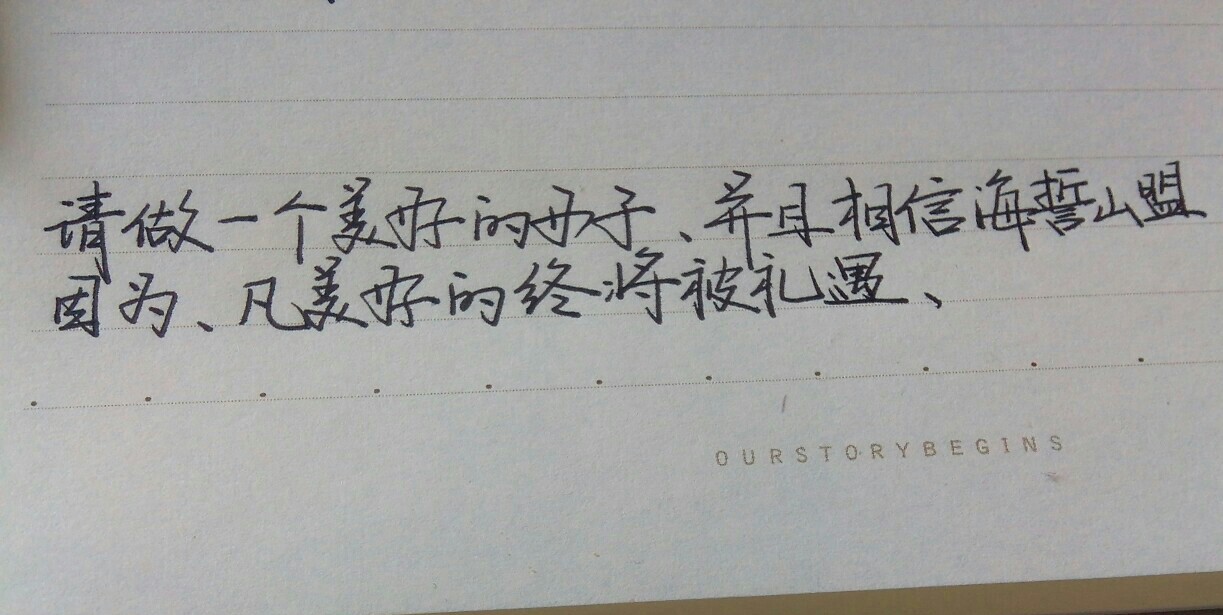 请做一个美好的女子、并且相信海誓山盟
因为、凡美好的终将被礼遇、
OURSTORYBEGINS